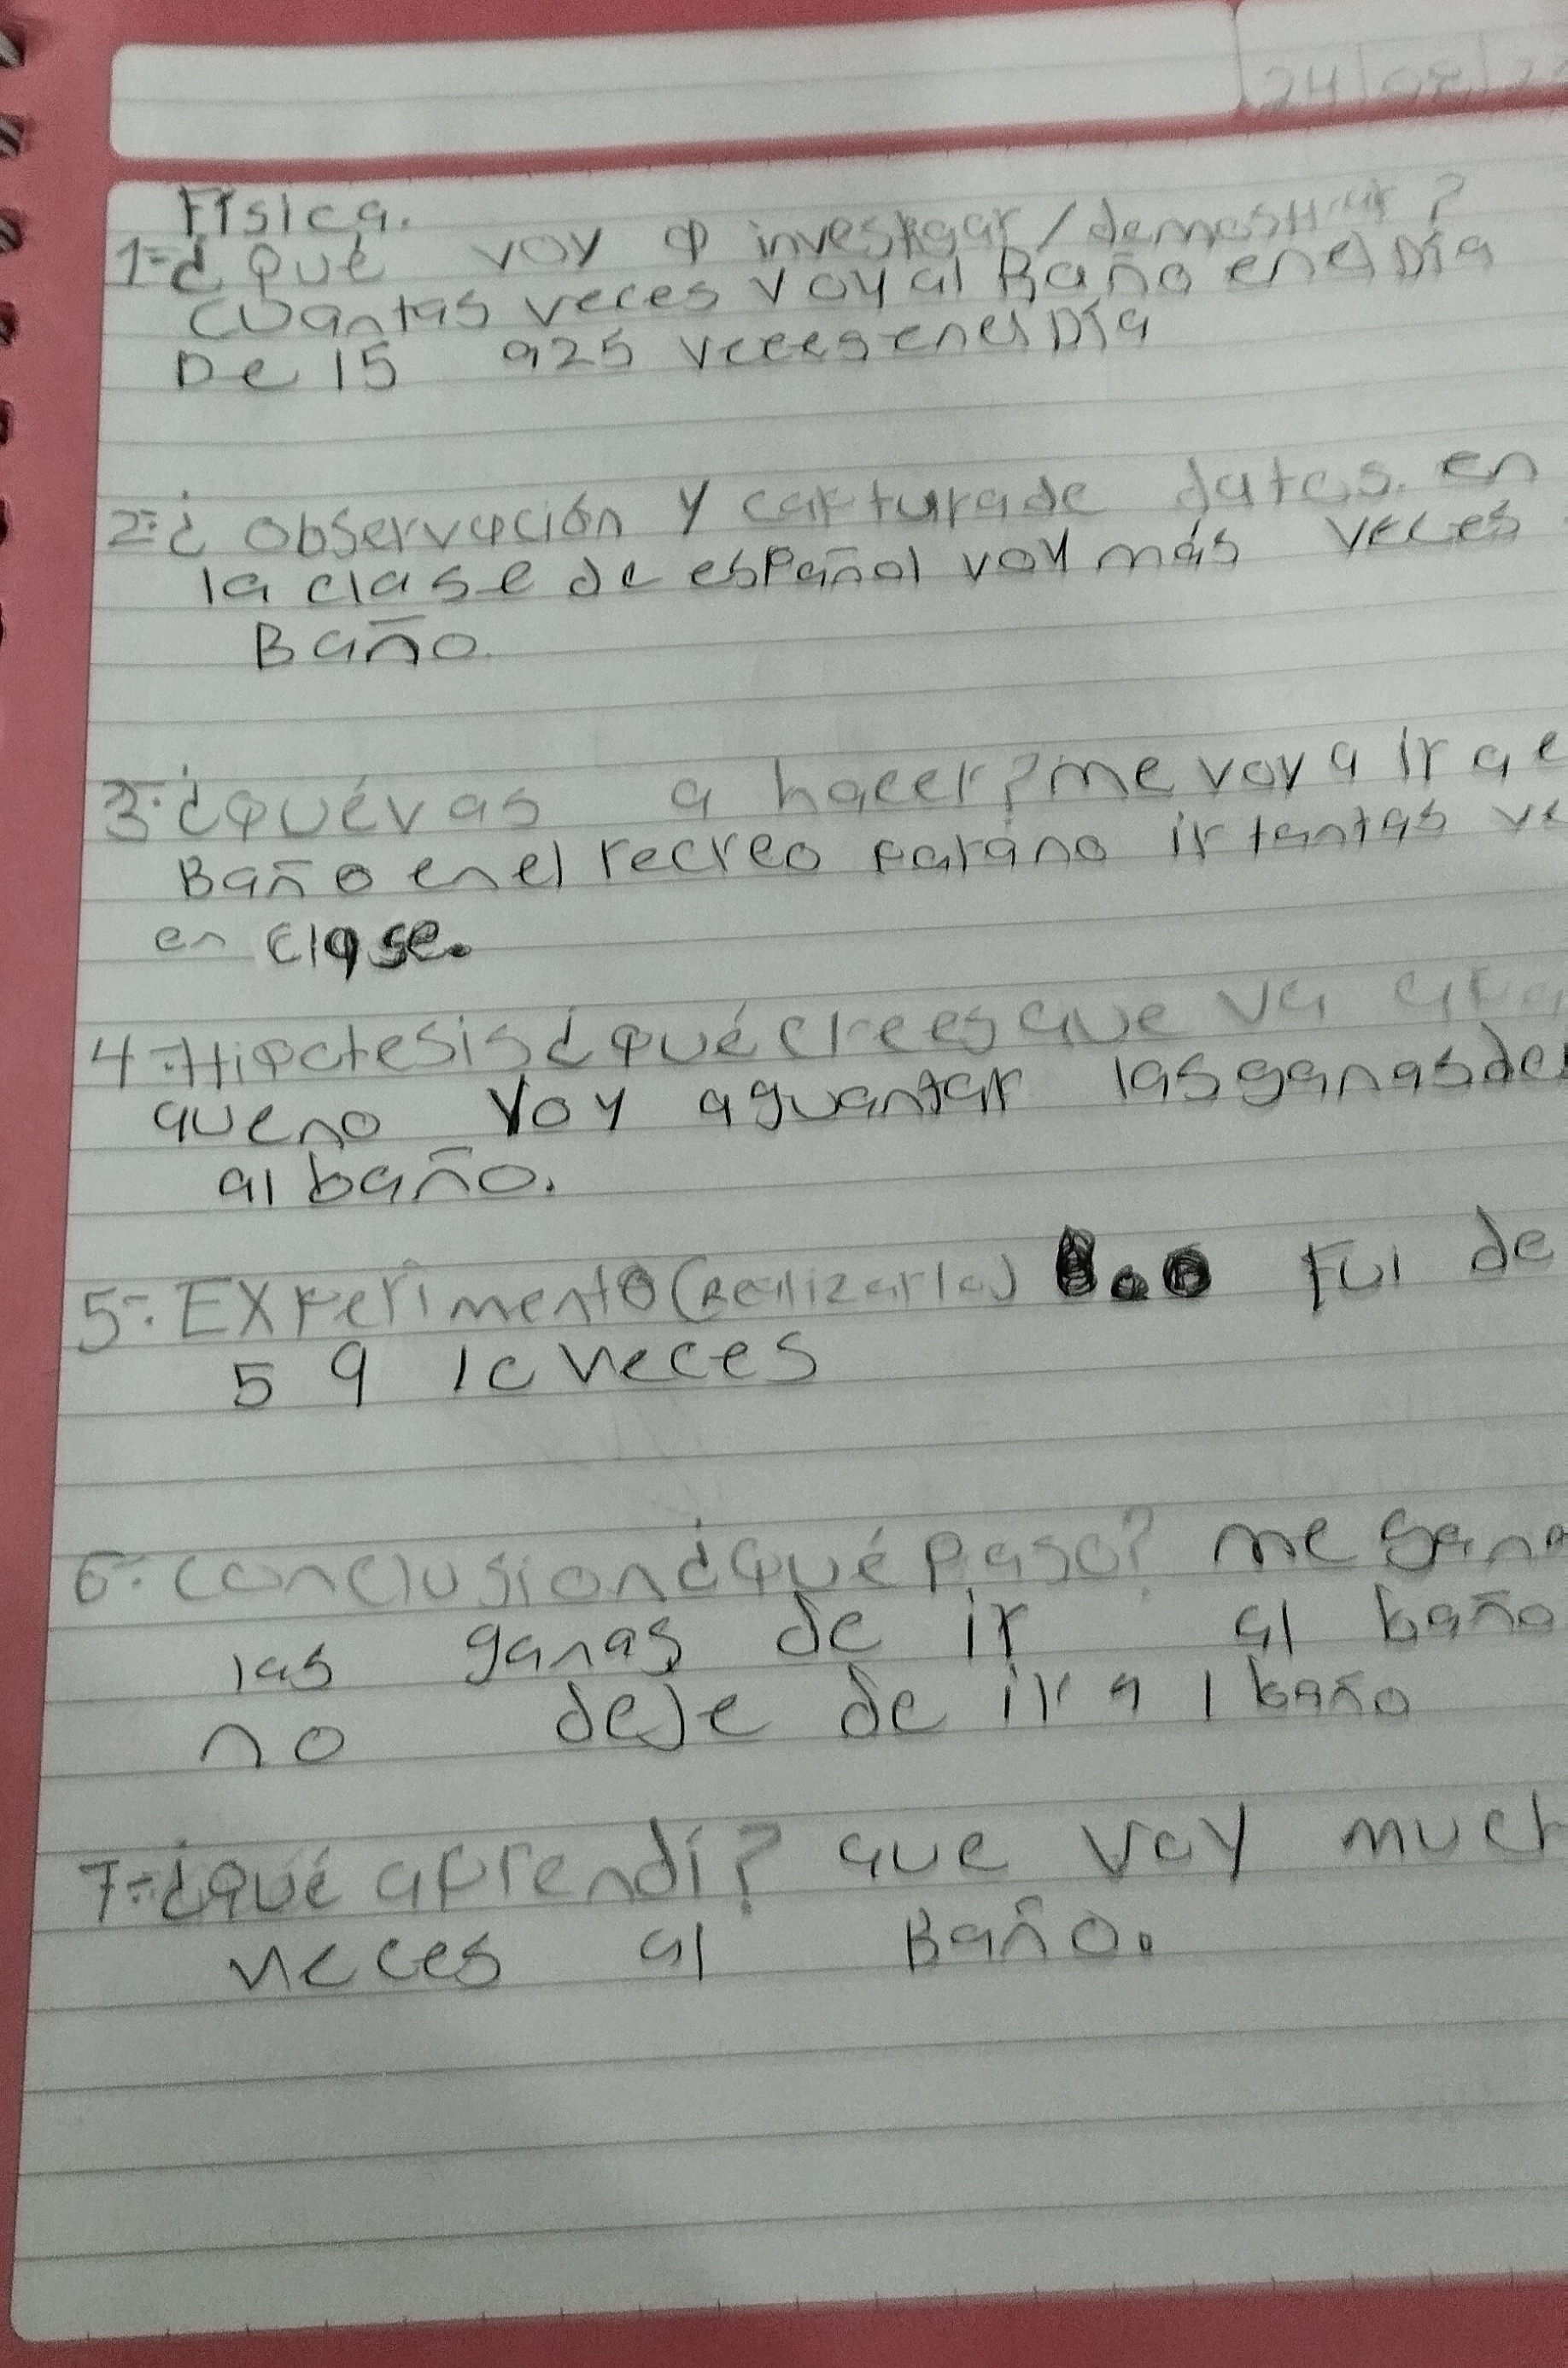 24/08/2
Física.
1-¿Qué voy a investigar/demostrar?
cuantas veces voy al Baño en el Día
De 15 a 25 veces en el Día
2-¿Observación y captura de datos. en
la clase de español voy más veces
Baño.
3-¿qué vas a hacer? me voy a ir a e
Baño en el recreo para no ir tantas ve
en clase.
4-Hipotesis ¿qué crees que va a pa
que no voy aguantar las ganas de
al baño.
5-Experimento (Realizarlo) Fui de
5 a 10 veces
6-conclusion ¿qué paso? me gana
las ganas de ir al baño
no deje de ir al baño
7-¿qué aprendí? que voy much
veces al Baño.